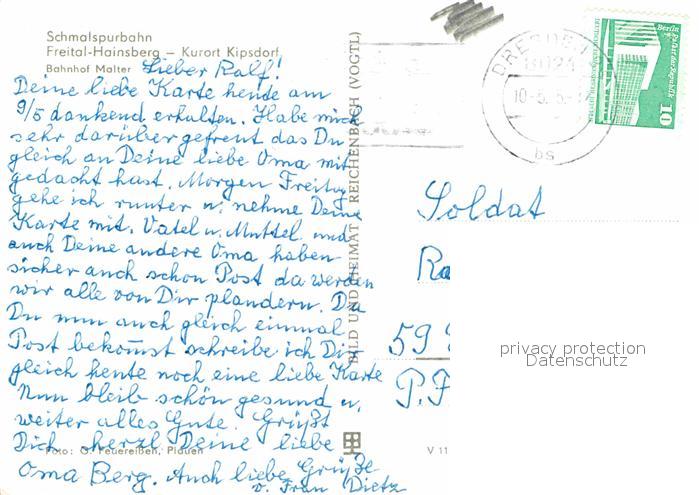 Schmalspurbahn
Freital-Hainsberg – Kurort Kipsdorf
Bahnhof Malter
Lieber Ralf!
Deine liebe Karte heute am
9/5 dankend erhalten. Habe mich
sehr darüber gefreut das Du
gleich an Deine liebe Oma mit
gedacht hast. Morgen Freitag
gehe ich runter u. nehme Deine
Karte mit. Vatel u. Muttel und
auch Deine andere Oma haben
sicher auch schon Post da werden
wir alle von Dir plaudern. Da
Du nun auch gleich einmal
Post bekommst schreibe ich Dir
gleich heute noch eine liebe Karte
Nun bleib schön gesund u.
weiter alles Gute. Grüßt
Dich herzl. Deine liebe
Oma Berg. Auch liebe Grüße
v. Frau Dietz
Foto: G. Feuereißen, Plauen
BILD UND HEIMAT REICHENBACH (VOGTL)
V 11
DRESDEN
8024
10-5.
bs
Berlin
Palast der Republik
10
Soldat
Ra
59
P.F
privacy protection
Datenschutz